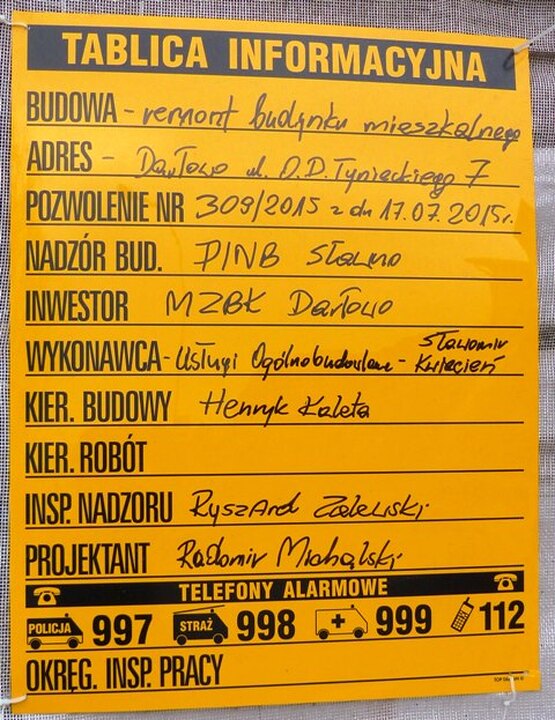 TABLICA INFORMACYJNA
BUDOWA - remont budynku mieszkalnego
ADRES - Darłowo ul. O.D. Tynieckiego 7
POZWOLENIE NR 309/2015 z dn 17.07.2015r.
NADZÓR BUD. PINB Sławno
INWESTOR MZBK Darłowo
WYKONAWCA - Usługi Ogólnobudowlane - Sławomir Kwiecień
KIER. BUDOWY Henryk Kaleta
KIER. ROBÓT
INSP. NADZORU Ryszard Zalewski
PROJEKTANT Radomir Michalski
TELEFONY ALARMOWE
POLICJA 997 STRAŻ 998 999 112
OKRĘG. INSP. PRACY